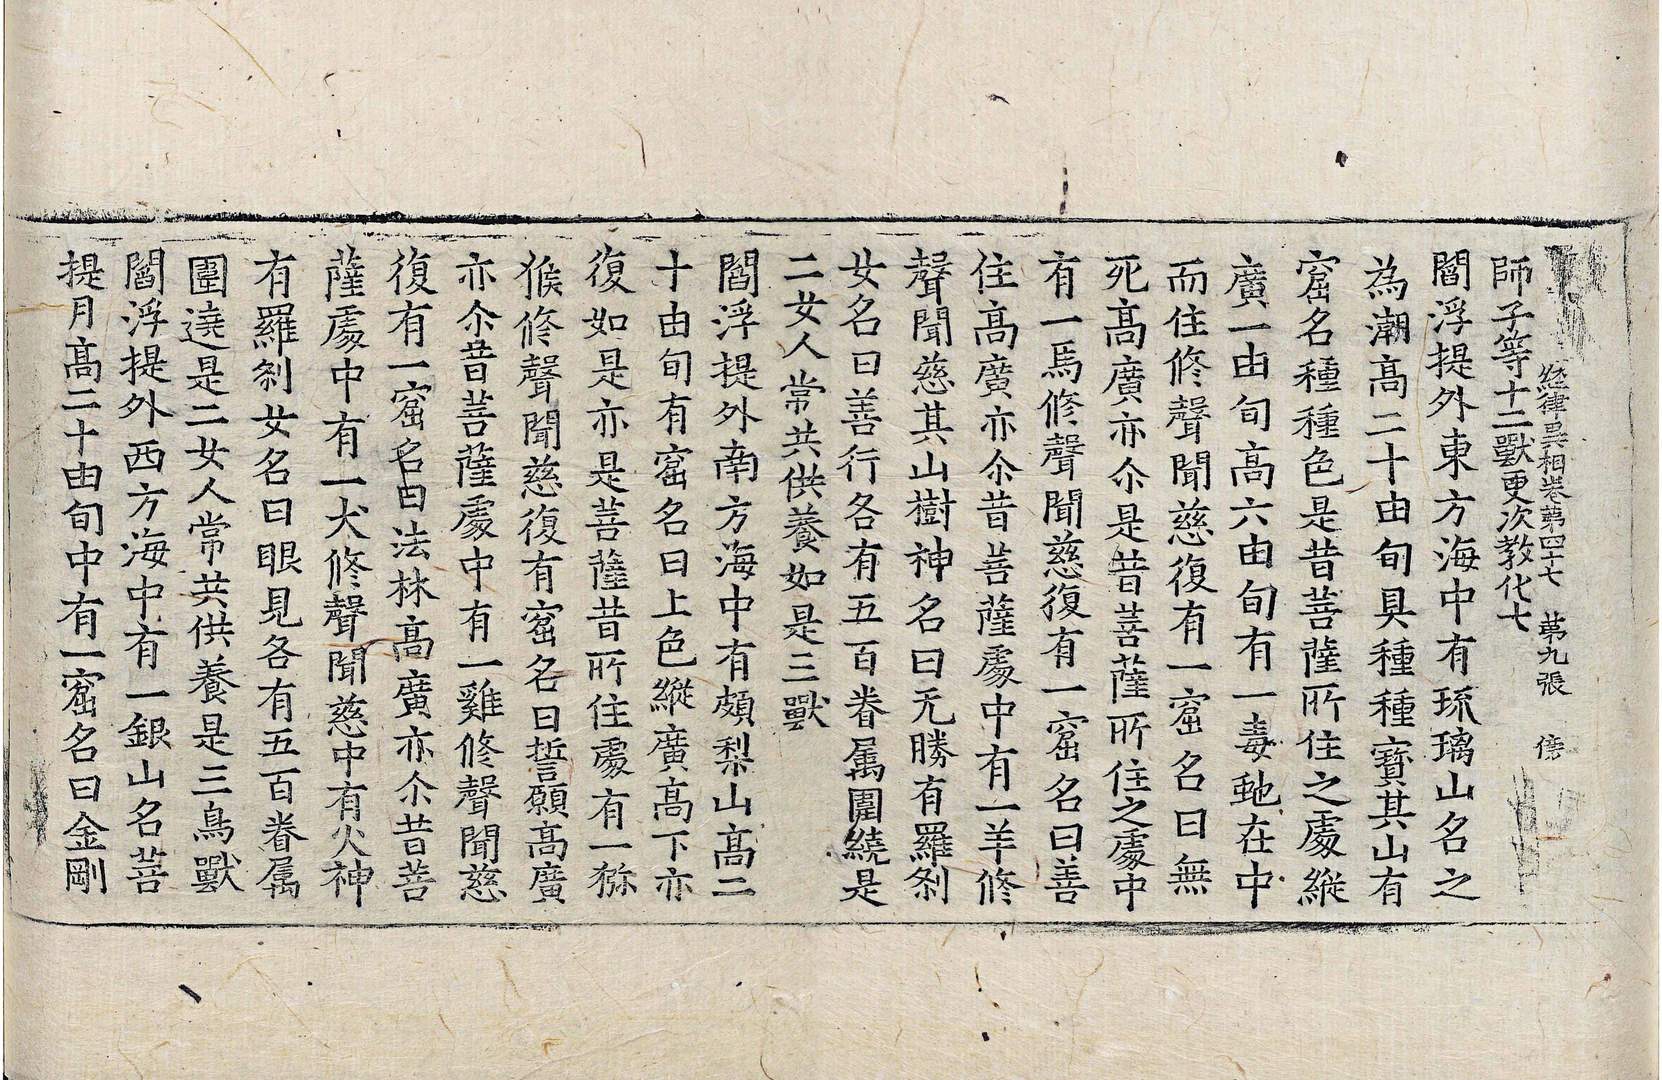 經律異相卷第四十七 第九張 傍
師子等十二獸更次教化七
閻浮提外東方海中有琉璃山名之
為潮高二十由旬具種種寶其山有
窟名種種色是昔菩薩所住之處縱
廣一由旬高六由旬有一毒虵在中
而住修聲聞慈復有一窟名曰無
死高廣亦尒是昔菩薩所住之處中
有一馬修聲聞慈復有一窟名曰善
住高廣亦尒昔菩薩處中有一羊修
聲聞慈其山樹神名曰无勝有羅刹
女名曰善行各有五百眷属圍繞是
二女人常共供養如是三獸
閻浮提外南方海中有頗梨山高二
十由旬有窟名曰上色縱廣高下亦
復如是亦是菩薩昔所住處有一猕
猴修聲聞慈復有窟名曰誓願高廣
亦尒昔菩薩處中有一雞修聲聞慈
復有一窟名曰法林高廣亦尒昔菩
薩處中有一犬修聲聞慈中有火神
有羅刹女名曰眼見各有五百眷属
圍遶是二女人常共供養是三鳥獸
閻浮提外西方海中有一銀山名菩
提月高二十由旬中有一窟名曰金剛